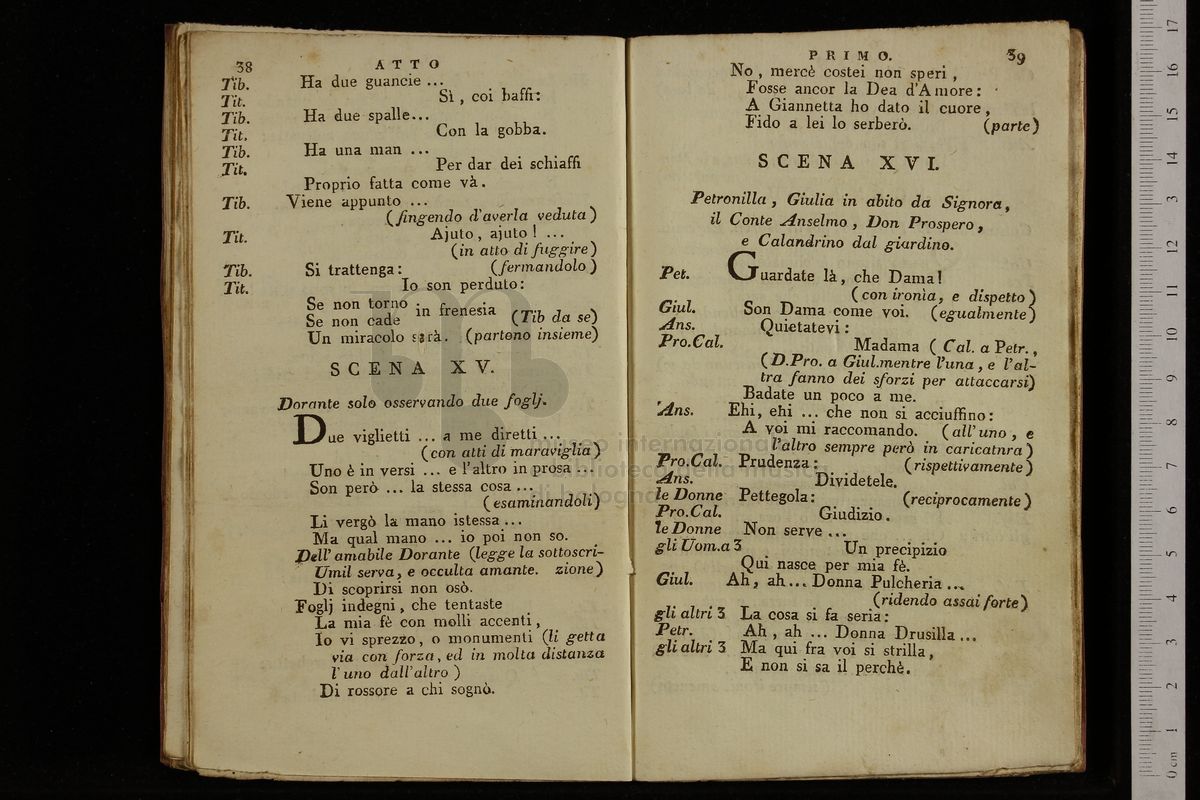 38 ATTO
Tib. Ha due guancie ...
Tit. Sì, coi baffi:
Tib. Ha due spalle...
Tit. Con la gobba.
Tib. Ha una man ...
Tit. Per dar dei schiaffi
Proprio fatta come và.
Tib. Viene appunto ...
(fingendo d'averla veduta)
Tit. Ajuto, ajuto! ...
(in atto di fuggire)
Tib. Si trattenga: (fermandolo)
Tit. Io son perduto:
Se non torno
in frenesia (Tib da se)
Se non cade
Un miracolo sarà. (partono insieme)
SCENA XV.
Dorante solo osservando due foglj.
Due viglietti ... a me diretti ...
(con atti di maraviglia)
Uno è in versi ... e l'altro in prosa ...
Son però ... la stessa cosa ...
(esaminandoli)
Li vergò la mano istessa ...
Ma qual mano ... io poi non so.
Dell' amabile Dorante (legge la sottoscri-
Umil serva, e occulta amante. zione)
Di scoprirsi non osò.
Foglj indegni, che tentaste
La mia fè con molli accenti,
Io vi sprezzo, o monumenti (li getta
via con forza, ed in molta distanza
l'uno dall'altro)
Di rossore a chi sognò.
PRIMO. 39
No, mercè costei non speri,
Fosse ancor la Dea d'Amore:
A Giannetta ho dato il cuore,
Fido a lei lo serberò. (parte)
SCENA XVI.
Petronilla, Giulia in abito da Signora,
il Conte Anselmo, Don Prospero,
e Calandrino dal giardino.
Pet. Guardate là, che Dama!
(con ironia, e dispetto)
Giul. Son Dama come voi. (egualmente)
Ans. Quietatevi:
Pro.Cal. Madama (Cal. a Petr.,
(D.Pro. a Giul.mentre l'una, e l'al-
tra fanno dei sforzi per attaccarsi)
Badate un poco a me.
Ans. Ehi, ehi ... che non si acciuffino:
A voi mi raccomando. (all'uno, e
l'altro sempre però in caricatnra)
Pro.Cal. Prudenza: (rispettivamente)
Ans. Dividetele.
le Donne Pettegola: (reciprocamente)
Pro.Cal. Giudizio.
le Donne Non serve ...
gli Uom.a 3 Un precipizio
Qui nasce per mia fè.
Giul. Ah, ah... Donna Pulcheria ...
(ridendo assai forte)
gli altri 3 La cosa si fa seria:
Petr. Ah, ah ... Donna Drusilla ...
gli altri 3 Ma qui fra voi si strilla,
E non si sa il perchè.
museo internazionale
e biblioteca della musica
di bologna
0 cm 1 2 3 4 5 6 7 8 9 10 11 12 13 14 15 16 17